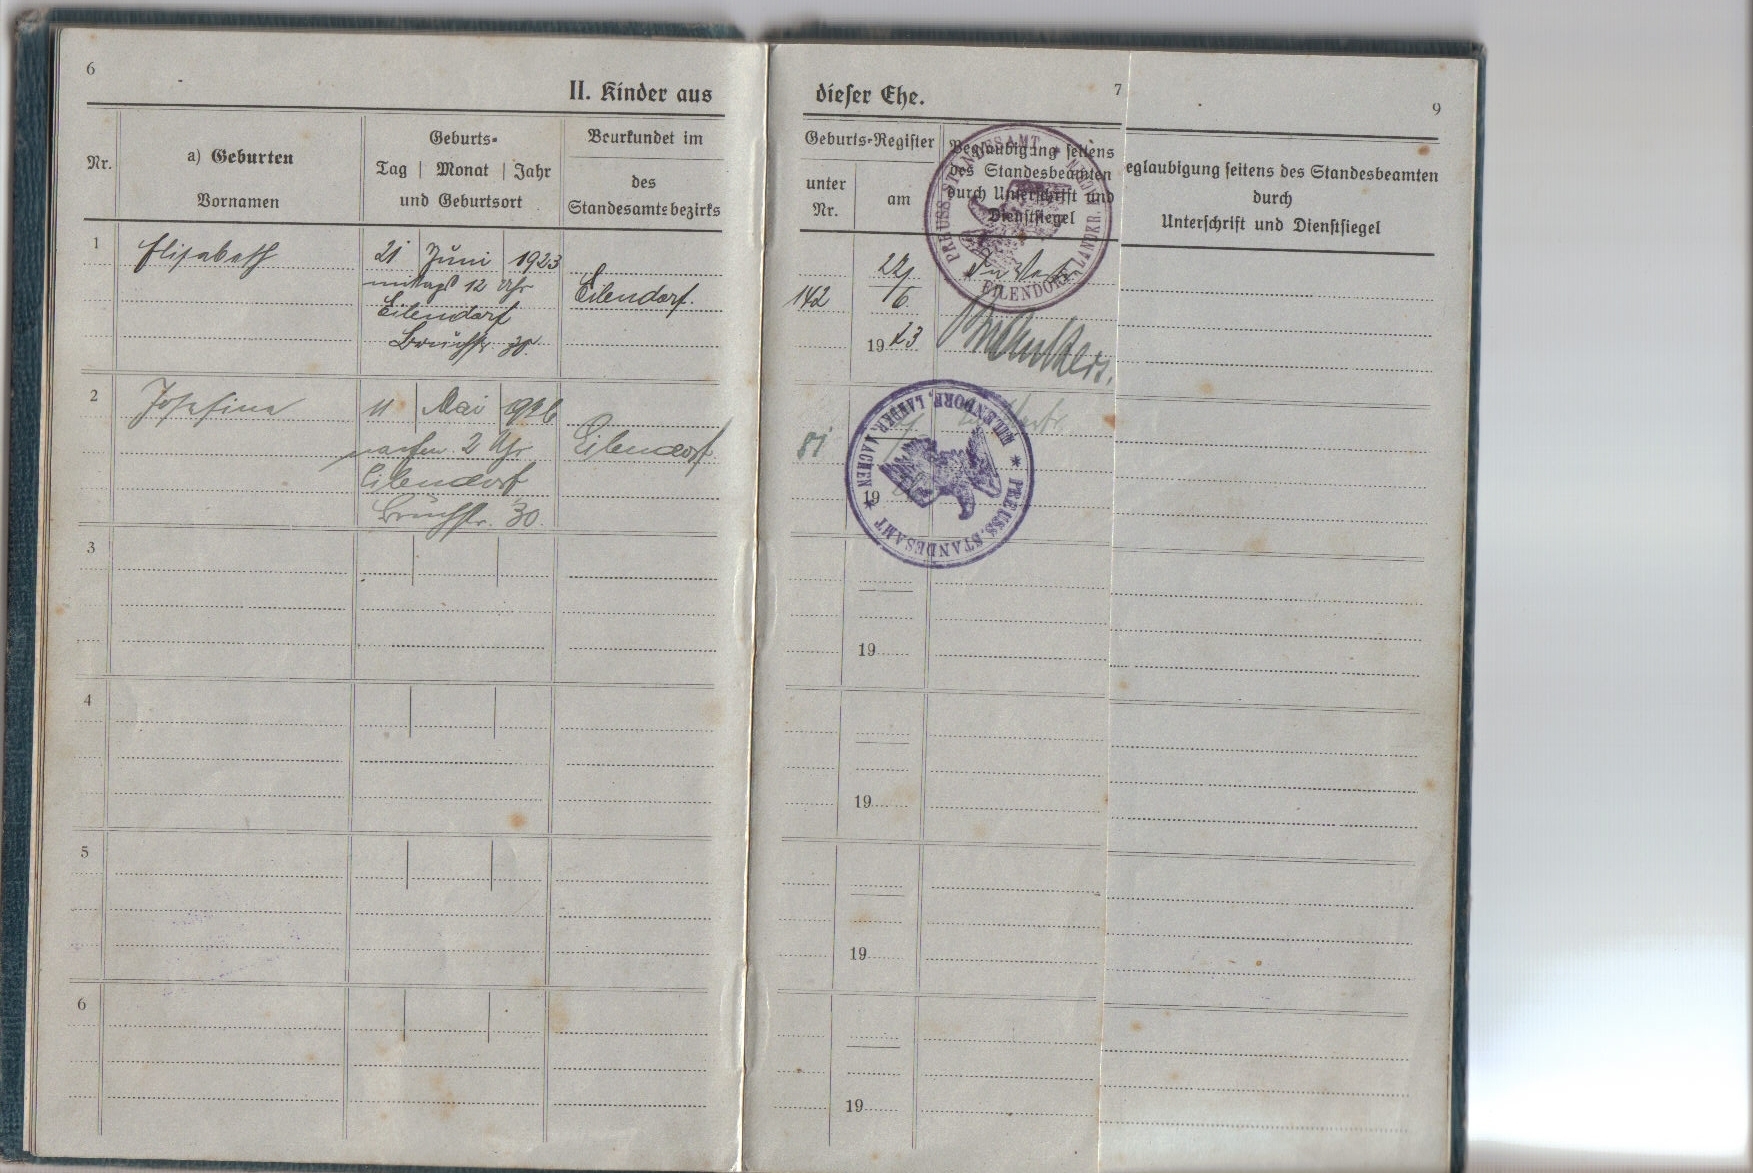 6
II. Kinder aus dieser Ehe.
7
9
Nr.
a) Geburten
Vornamen
Geburts-
Tag | Monat | Jahr
und Geburtsort
Beurkundet im
des
Standesamtsbezirks
Geburts-Register
unter
Nr.
am
Beglaubigung seitens
des Standesbeamten
durch Unterschrift und
Dienstsiegel
eglaubigung seitens des Standesbeamten
durch
Unterschrift und Dienstsiegel
1
Elisabeth
21 Juni 1923
mittags 12 Uhr
Eilendorf
30
Eilendorf.
142
22/6
1923
PREUSS. STANDESAMT
EILENDORF
2
Josefina
11 Mai 1926
2 Uhr
Eilendorf
30.
Eilendorf
81
19
PREUSS. STANDESAMT * EILENDORF, LANDKR. AACHEN *
3
19
4
19
5
19
6
19